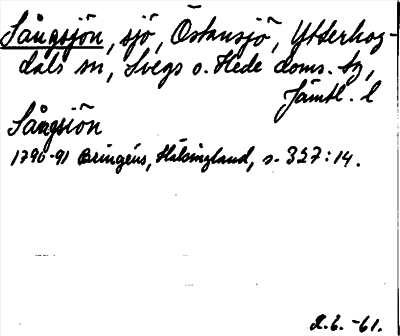 Sångsjön, sjö, Östansjö, Ytterhog-
dals sn, Svegs o. Hede doms. tg,
Jämtl. l
Sångsiön
1790-91 Bringéus, Hälsingland, s. 327:14.
2.6.-61.